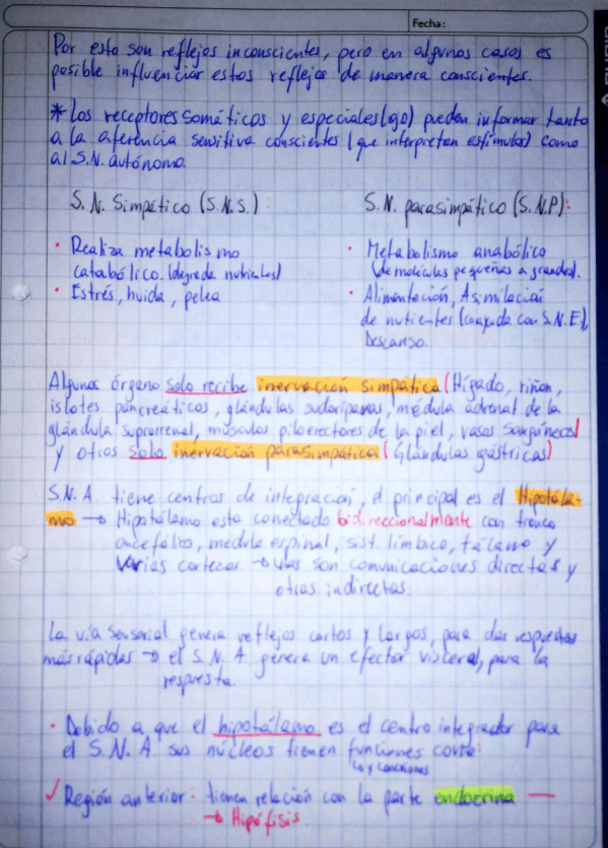 Fecha:
Por esto son reflejos inconscientes, pero en algunos casos es
posible influenciar estos reflejos de manera conscientes.
* Los receptores somáticos y especiales (ojo) pueden informar tanto
a la aferencia sensitiva conscientes (que interpretan estímulos) como
al S.N. autónomo.
S.N. Simpático (S.N.S.):
S.N. parasimpático (S.N.P):
• Realiza metabolismo
catabólico. (degrada nutrientes)
• Estrés, huida, pelea
• Metabolismo anabólico
(de moléculas pequeñas a grandes).
• Alimentación, Asimilación
de nutrientes (conjunto con S.N.E),
Descanso.
Algunos órgano solo recibe inervación simpática (Hígado, riñon,
islotes pancreáticos, glándulas sudoríparas, médula adrenal de la
glándula suprarrenal, músculos piloerectores de la piel, vasos sanguíneos)
y otros solo inervación parasimpatica (Glándulas gástricas)
S.N.A. tiene centros de integración, el principal es el Hipotála-
mo → Hipotálamo esta conectado bidireccionalmente con tronco
encefálico, médula espinal, sist. límbico, tálamo y
varias cortezas. → unas son comunicaciones directas y
otras indirectas.
La vía sensorial genera reflejos cortos y largos, para dar respuestas
más rápidas → el S.N.A genera un efector visceral, para la
respuesta.
• Debido a que el hipotálamo es el centro integrador para
el S.N.A. sus núcleos tienen funciones como:
y conexiones
✓ Región anterior: tienen relación con la parte endocrina —
→ Hipófisis.